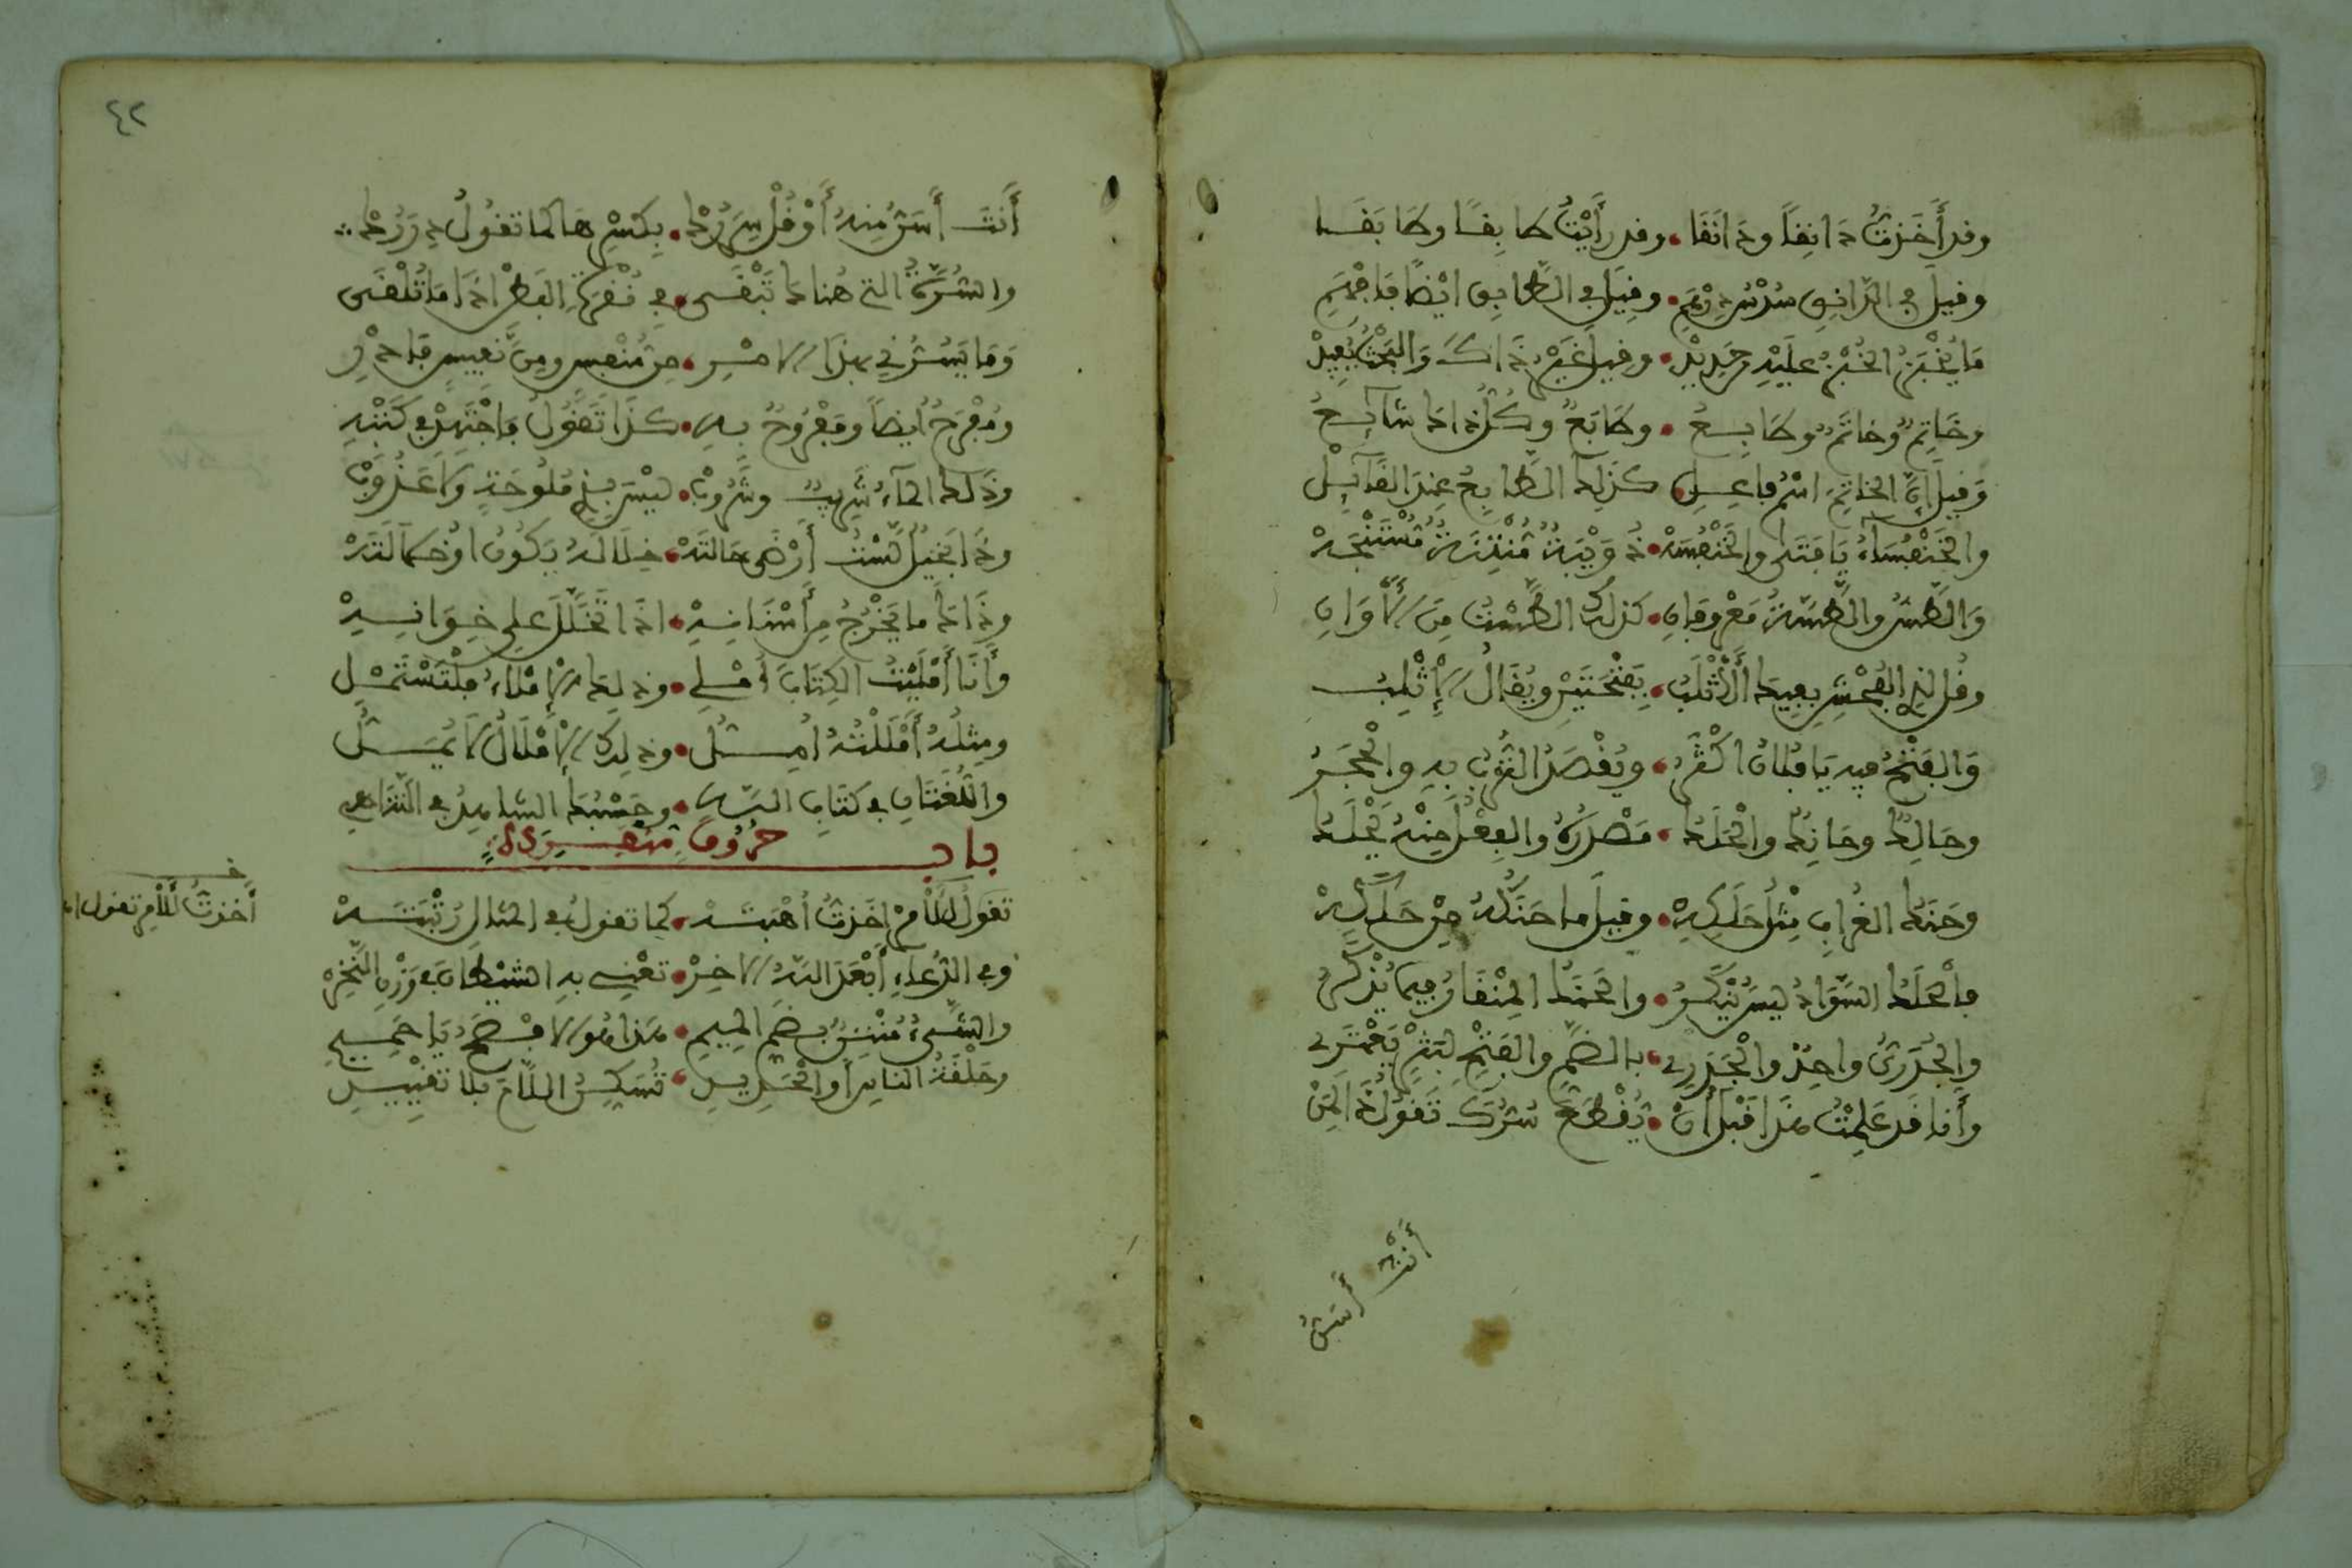 وقد أَخَذتُ دَانِقاً ودَانَقَا • وقد رَأَيْتُ طَابِقًا وطَابَقَا
وقيلَ في الدّانِقِ سُدْسُ دِرْهَمِ • وقِيلَ في الطّابِقِ ايْضًا فَافْهَمِ
مَا يُخْبَزُ الخُبْزُ عَلَيْهِ حَدِيدْ • وقيلَ غَيْرُ ذَاكَ وَالبَحْثُ يُفِيدْ
وخَاتِمٌ وخاتَمٌ وطَابِعُ • وطَابَعٌ وكُلُّ ذَاكَ شَآيِعُ
وَقِيلَ إِنَّ الخاتِمَ اسْمُ فاعِلِ • كَذَلِكَ الطَّابِعُ عِندَ القَآيِلْ
والخُنْفُسَاءُ يَا فَتَى والخُنْفُسَهْ • دُوَيْبَةٌ مُنْتِنَةٌ مُسْتَنْجَسَهْ
وَالطَّسُّ والطَّسَّةُ مَعْرُوفَانِ • كَذلِكَ الطَّسْتُ مِنَ الأَوَانِي
وقُل لذي الفُحْشِ بفِيكَ الأَثْلَبُ • بِفَتْحَتَيْنِ ويُقَالُ الإِثْلِبُ
وَالفَتْحُ فيهِ يَا فُلانُ اكْثَرُ • ويُقْصَدُ التُّرْبُ بِهِ والْحَجَرُ
وحَالِكٌ وحَانِكٌ والْحَلَكُ • مَصْدَرُهُ والفِعْلُ مِنْهُ يَحْلَكُ
وحَنَكُ الغُرَابِ مِثْلُ حَلَكِهْ • وقِيلَ ما حَنَكُهُ مِنْ حَلَكِهْ
فالْحَلَكُ السَّوَادُ لَيسَ يُنْكَرُ • والحَنَكُ المِنْقَارُ فِيمَا يُذْكَرُ
والجُدَرِيُّ واحِدٌ والْجَدَرِي • بالضَّمِّ والفَتْحِ لبَثْرٍ يَعْتَرِي
وأَنا قَد عَلِمْتُ هذَا قَبْلَ أَنْ • يُقْطَعَ سُرُّكَ تَقُولُ ذَا لِمَنْ
أَنْتَ أَسَنُّ
أَنتَ أَسَنُّ مِنهُ أَوْ قُلْ سِرَرُكْ • بكَسْرِهَا كما تقُولُ دِرَرُكْ
والسُّرَّةُ التي هُنَاكَ تَبْقَى • في نُقْرَةِ البَطْنِ إذَا مَا تُلْقَى
وَمَا يَسُرُّنِي بهَذَا الامْرِ • مِنْ مُنْفِسٍ ومِن نَفِيسٍ فَادْرِ
ومُفْرِحٌ أيضاً ومَفْرُوحٌ بِهِ • كَذَا تَقُولُ فاجْتَهِدْ في كَتْبِهِ
وذَلكَ المآءُ شَرِيبٌ وشَرُوبْ • لَيْسَ بذِي مُلُوحَةٍ ولا عَذُوبْ
وذَا بَخِيلٌ لَسْتُ أَرْضَى حَالتَهْ • خِلالَهُ يَكُونُ أوْ خُلالَتَهْ
وذَاكَ ما يَخْرُجُ مِنْ أَسْنَانِهِ • اذَا تَخَلَّلَ على خِوَانِهِ
وأَنَا أَمْلَيْتُ الكِتَابَ أُمْلِي • وذَلِكَ الإِمْلاءُ فَلْتَسْتَمْلِ
ومِثْلُهُ أَمْلَلْتُهُ أُمِلُّ • وذلِكَ الإِمْلالُ لا يُمَلُّ
واللُّغَتَانِ في كتَابِ اللهِ • وحَسْبُكَ الشَّاهِدُ في التَّنَاهِي
باب حُرُوفٍ مُنْفَرِدَةٍ
تَقُولُ للأَمْرِ أَخَذتُ أُهْبَتَهْ • كما تقولُ في المثالِ رُتْبَتَهْ
وفي الدُّعَاءِ أَبْعَدَ اللهُ الاخِرْ • تَعْنِي بهِ الشيْطَانَ في وَزْنِ النَّخِرْ
والشَّيءُ مُنْتِنٌ بضَمِّ المِيمِ • هذا هُو الافْصَحُ يَا حَمِيمِي
وحَلْقَةُ الناسِ أَو الْحَدِيدِ • تُسَكِّنُ اللاَّمَ بلا تَفْنِيدِ
خ
أَخَذتُ لِلأَمْرِ تقول ا
٤٢